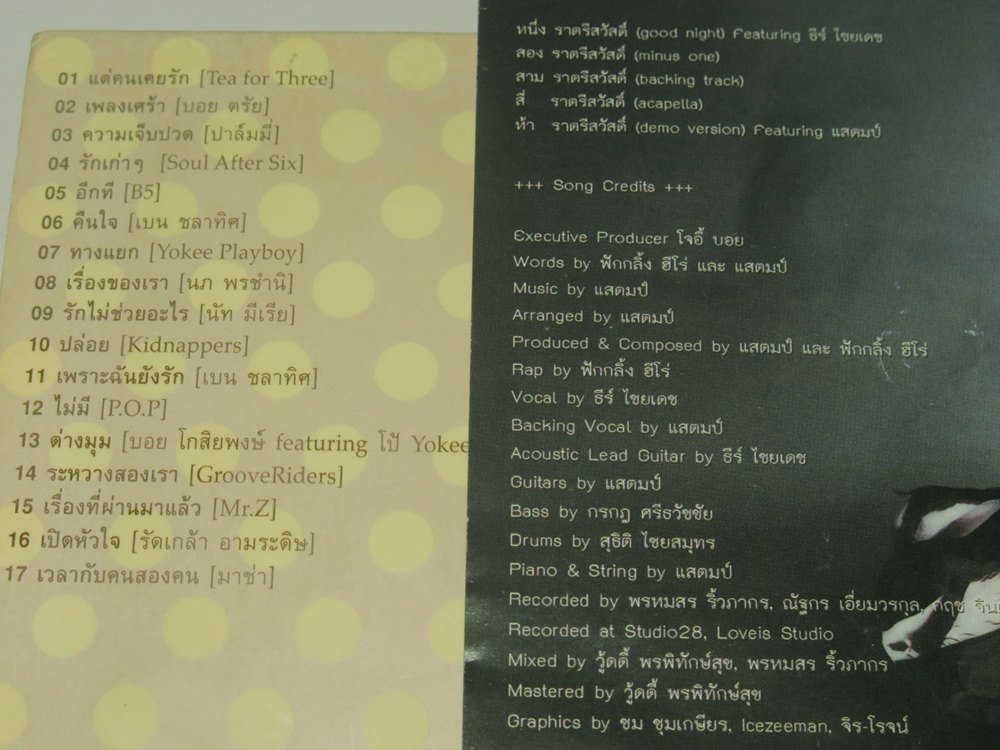 01 แด่คนเคยรัก [Tea for Three]
02 เพลงเศร้า [บอย ตรัย]
03 ความเจ็บปวด [ปาล์มมี่]
04 รักเก่าๆ [Soul After Six]
05 อีกที [B5]
06 คืนใจ [เบน ชลาทิศ]
07 ทางแยก [Yokee Playboy]
08 เรื่องของเรา [นภ พรชำนิ]
09 รักไม่ช่วยอะไร [นัท มีเรีย]
10 ปล่อย [Kidnappers]
11 เพราะฉันยังรัก [เบน ชลาทิศ]
12 ไม่มี [P.O.P]
13 ต่างมุม [บอย โกสิยพงษ์ featuring โป้ Yokee
14 ระหวางสองเรา [GrooveRiders]
15 เรื่องที่ผ่านมาแล้ว [Mr.Z]
16 เปิดหัวใจ [รัดเกล้า อามระดิษ]
17 เวลากับคนสองคน [มาช่า]
หนึ่ง ราตรีสวัสดิ์ (good night) Featuring ธีร์ ไชยเดช
สอง ราตรีสวัสดิ์ (minus one)
สาม ราตรีสวัสดิ์ (backing track)
สี่ ราตรีสวัสดิ์ (acapella)
ห้า ราตรีสวัสดิ์ (demo version) Featuring แสตมป์
+++ Song Credits +++
Executive Producer โจอี้ บอย
Words by ฟักกลิ้ง ฮีโร่ และ แสตมป์
Music by แสตมป์
Arranged by แสตมป์
Produced & Composed by แสตมป์ และ ฟักกลิ้ง ฮีโร่
Rap by ฟักกลิ้ง ฮีโร่
Vocal by ธีร์ ไชยเดช
Backing Vocal by แสตมป์
Acoustic Lead Guitar by ธีร์ ไชยเดช
Guitars by แสตมป์
Bass by กรกฎ ศรีธวัชชัย
Drums by สุธิติ ไชยสมุทร
Piano & String by แสตมป์
Recorded by พรหมสร ริ้วภากร, ณัฐกร เอี่ยมวรกุล,
Recorded at Studio28, Loveis Studio
Mixed by วู้ดดี้ พรพิทักษ์สุข, พรหมสร ริ้วภากร
Mastered by วู้ดดี้ พรพิทักษ์สุข
Graphics by ชม ชุมเกษียร, Icezeeman, จิร-โรจน์